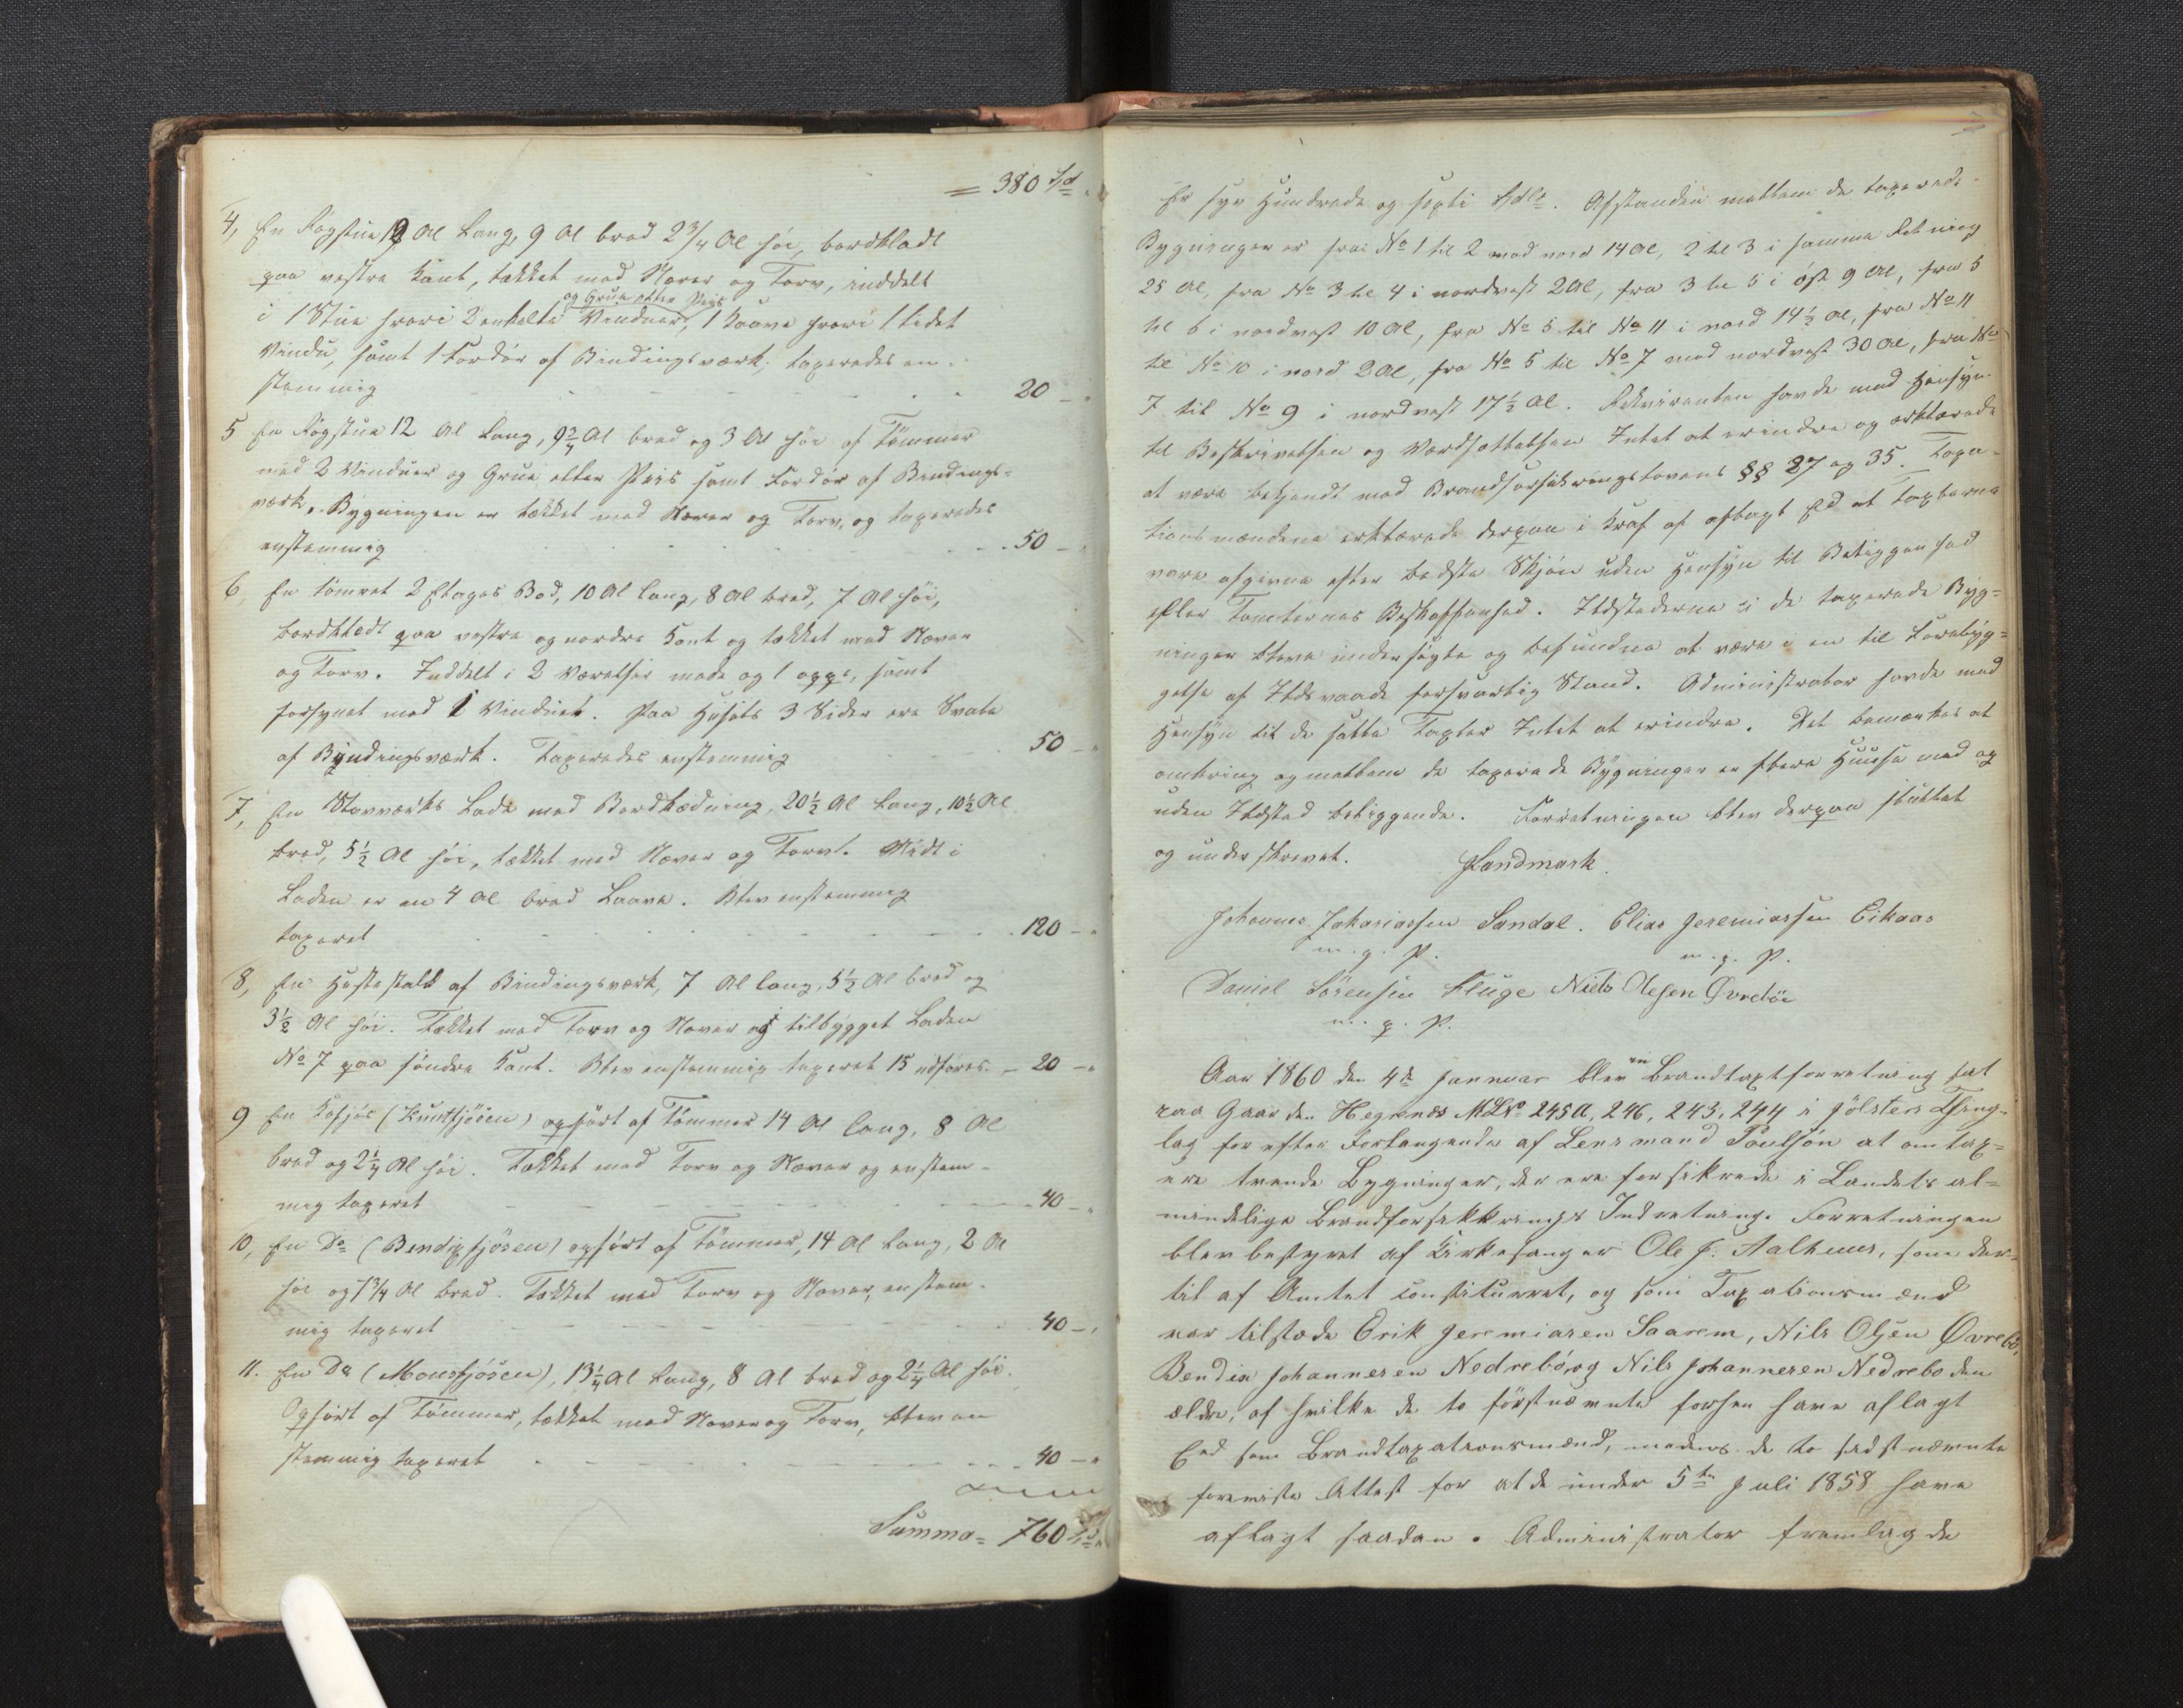 = 380 Spd
4, En Røgstue 12 Al lang, 9 Al bred 2 3/4 Al høi, bordklædt
paa vestre Kant, tækket med Næver og Torv, inddelt
i 1 Stue hvori 2 enkelte Vinduer, og Grue eller Peis 1 Kove hvori 1 lidet
Vindu, samt 1 Fordør af Bindingsværk; taxeredes en-
stemmig 20
5 En Røgstue 12 Al lang, 9 3/4 Al bred og 3 Al høi af Tømmer
med 2 Vinduer og Grue eller Peis samt Fordør af Bindings-
værk. Bygningen er tækket med Næver og Torv, og taxeredes
enstemmig 50
6, En tømret 2 Etages Bod, 10 Al lang, 8 Al bred, 7 Al høi,
bordklædt paa vestre og nordre Kant og tækket med Næver
og Torv. Inddelt i 2 Værelser nede og 1 oppe, samt
forsynet med 1 Vindue. Paa Husets 3 Sider ere Svale
af Bindingsværk. Taxeredes enstemmig 50
7, En Stavværks Lade med Bordklædning, 20 1/2 Al lang, 10 1/2 Al
bred, 5 1/2 Al høi, tækket med Næver og Torv. Midt i
Laden er en 4 Al bred Laave. Blev enstemmig
taxeret 120
8, En Hestestald af Bindingsværk, 7 Al lang, 5 1/2 Al bred og
3 1/2 Al høi. Tækket med Torv og Næver og tilbygget Laden
No 7 paa søndre Kant. Blev enstemmig taxeret 15 udføres 20
9 En Kofjøs (Knutfjøsen) opført af Tømmer 14 Al lang, 8 Al
bred og 2 1/4 Al høi. Tækket med Torv og Næver og enstem-
mig taxeret 40
10, En Do (Bendixfjøsen) opført af Tømmer, 14 Al lang, 2 Al
høi og 7 3/4 Al bred. Tækket med Torv og Næver, enstem-
mig taxeret 40
11. En Do (Monsfjøsen), 13 1/4 Al lang, 8 Al bred og 2 1/4 Al høi.
Opført af Tømmer, tækket med Næver og Torv, blev en
stemmig taxeret 40
Summa = 760 Spd
Er syv Hundrede og sexti Spdlr. Afstanden mellem de taxerede
Bygninger er fra No 1 til 2 mod nord 14 Al, 2 til 3 i samme Retning
25 Al, fra No 3 til 4 i nordvest 2 Al, fra 3 til 5 i øst 9 Al, fra 5
til 6 i nordvest 10 Al, fra No 5 til No 11 i nord 14 1/2 Al, fra No 11
til No 10 i nord 2 Al, fra No 5 til No 7 mod nordvest 30 Al, fra No
7 til No 9 i nordvest 17 1/2 Al. Rekvirenten havde med Hensyn
til Beskrivelsen og Værdsættelsen Intet at erindre og erklærede
at være bekjendt med Brandforsikringslovens §§ 27 og 35. Taxa-
tionsmændene erklærede derpaa i Kraft af aflagt Ed at Taxterne
vare afgivne efter bedste Skjøn uden Hensyn til Beliggenhed
eller Tomternes Beskaffenhed. Ildstederne i de taxerede Byg-
ninger bleve undersøgte og befundne at være i en til Forebyg-
gelse af Ildsvaade forsvarlig Stand. Administrator havde med
Hensyn til de satte Taxter Intet at erindre. Det bemærkes at
omkring og mellem de taxerede Bygninger er flere Huse med og
uden Ildsted beliggende. Forretningen blev derpaa sluttet
og underskrevet. Landmark.
Johannes Zakariassen Sandal. Elias Jeremiassen Eikaas
m. p. P. m. p. P.
Daniel Sørensen Kluge Niels Olesen Øvrebøe
m. p. P.
Aar 1860 den 4de Januar blev en Brandtaxtforretning sat
paa Gaarden Hegrenæs MLNo 245a, 246, 243, 244 i Jølsters Thing-
lag for efter Forlangende af Lensmand Poulsøn at omtax-
ere trende Bygninger, der ere forsikrede i Landets al-
mindelige Brandforsikkrings Indretning. Forretningen
blev bestyret af Kirkesanger Ole J. Aalhuus, som der-
til af Amtet constitueret, og som Taxationsmænd
var tilstæde Erik Jeremiasen Saarem, Nils Olsen Øvrebø,
Bendix Johannesen Nedrebø, og Nils Johannesen Nedrebø den
ældre, af hvilke de to førstnævnte forhen have aflagt
Eed som Brandtaxationsmænd, medens de to sidstnævnte
foreviste Attest for at de under 5te Juli 1858 have
aflagt saadan. Administrator fremlagde